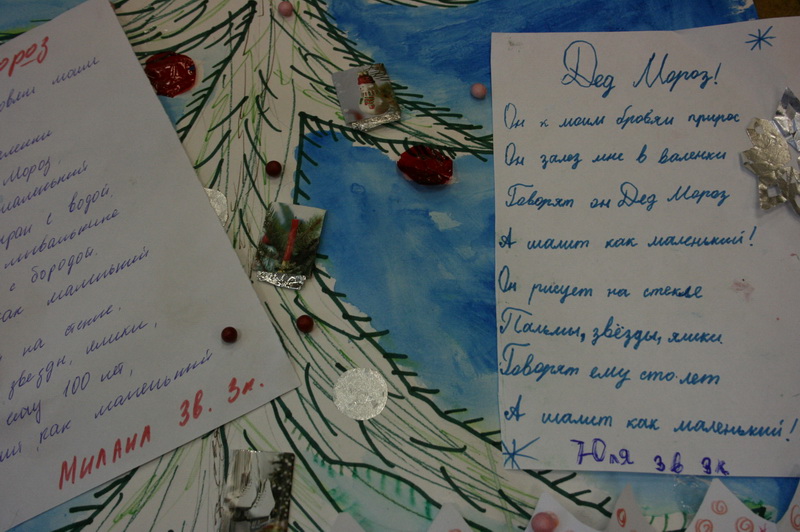 ороз
бровям моим
валенки
Мороз,
маленький
кран с водой.
умывальнике
с бородой.
как маленький
на стекле,
звезды, ялики,
ему 100 лет,
как маленький
МИЛАИЛ 3В. 3к.
Дед Мороз!
Он к моим бровям прирос
Он залез мне в валенки
Говорят он Дед Мороз
А шалит как маленький!
Он рисует на стекле
Пальмы, звёзды, ялики
Говорят ему сто лет
А шалит как маленький!
Юля 3в 3к